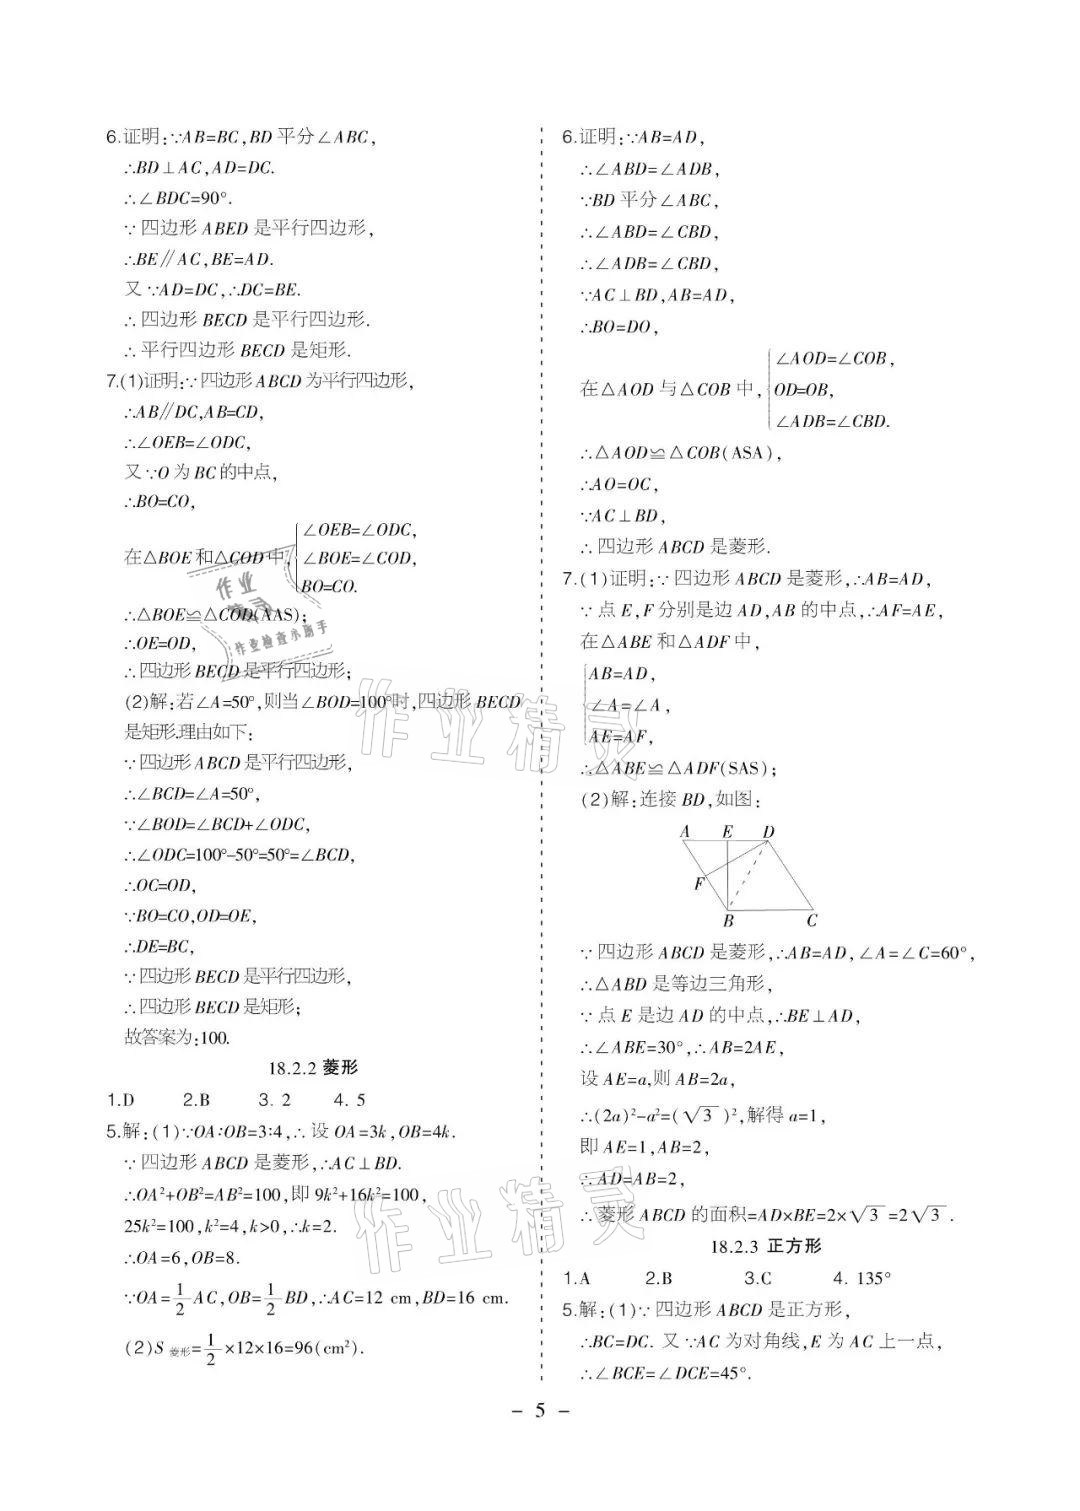 6.证明:∵AB=BC,BD 平分∠ABC,
∴BD⊥AC,AD=DC.
∴∠BDC=90°.
∵四边形 ABED 是平行四边形,
∴BE∥AC,BE=AD.
又∵AD=DC,∴DC=BE.
∴四边形 BECD 是平行四边形.
∴平行四边形 BECD 是矩形.
7.(1)证明:∵四边形 ABCD 为平行四边形,
∴AB∥DC,AB=CD,
∴∠OEB=∠ODC,
又∵O 为 BC 的中点,
∴BO=CO,
∠OEB=∠ODC,
在△BOE 和△COD 中, ∠BOE=∠COD,
BO=CO.
∴△BOE≌△COD(AAS);
∴OE=OD,
∴四边形 BECD 是平行四边形;
(2)解:若∠A=50°,则当∠BOD=100°时,四边形 BECD
是矩形.理由如下:
∵四边形 ABCD 是平行四边形,
∴∠BCD=∠A=50°,
∵∠BOD=∠BCD+∠ODC,
∴∠ODC=100°-50°=50°=∠BCD,
∴OC=OD,
∵BO=CO,OD=OE,
∴DE=BC,
∵四边形 BECD 是平行四边形,
∴四边形 BECD 是矩形;
故答案为:100.
18.2.2 菱形
1.D 2.B 3. 2 4. 5
5.解:(1)∵OA∶OB=3∶4,∴设 OA=3k,OB=4k.
∵四边形 ABCD 是菱形,∴AC⊥BD.
∴OA²+OB²=AB²=100,即 9k²+16k²=100,
25k²=100,k²=4,k>0,∴k=2.
∴OA=6,OB=8.
∵OA=1/2 AC,OB=1/2 BD,∴AC=12 cm,BD=16 cm.
(2)S 菱形=1/2×12×16=96(cm²).
6.证明:∵AB=AD,
∴∠ABD=∠ADB,
∵BD 平分∠ABC,
∴∠ABD=∠CBD,
∴∠ADB=∠CBD,
∵AC⊥BD,AB=AD,
∴BO=DO,
∠AOD=∠COB,
在△AOD 与△COB 中, OD=OB,
∠ADB=∠CBD.
∴△AOD≌△COB(ASA),
∴AO=OC,
∵AC⊥BD,
∴四边形 ABCD 是菱形.
7.(1)证明:∵四边形 ABCD 是菱形,∴AB=AD,
∵点 E,F 分别是边 AD,AB 的中点,∴AF=AE,
在△ABE 和△ADF 中,
AB=AD,
∠A=∠A,
AE=AF,
∴△ABE≌△ADF(SAS);
(2)解:连接 BD,如图:
A E D
F
B C
∵四边形 ABCD 是菱形,∴AB=AD,∠A=∠C=60°,
∴△ABD 是等边三角形,
∵点 E 是边 AD 的中点,∴BE⊥AD,
∴∠ABE=30°,∴AB=2AE,
设 AE=a,则 AB=2a,
∴(2a)²-a²=(√3)²,解得 a=1,
即 AE=1,AB=2,
∴AD=AB=2,
∴菱形 ABCD 的面积=AD×BE=2×√3=2√3.
18.2.3 正方形
1.A 2.B 3.C 4. 135°
5.解:(1)∵四边形 ABCD 是正方形,
∴BC=DC. 又∵AC 为对角线,E 为 AC 上一点,
∴∠BCE=∠DCE=45°.
- 5 -
作业精灵
作业检查小助手
作业精灵
作业精灵